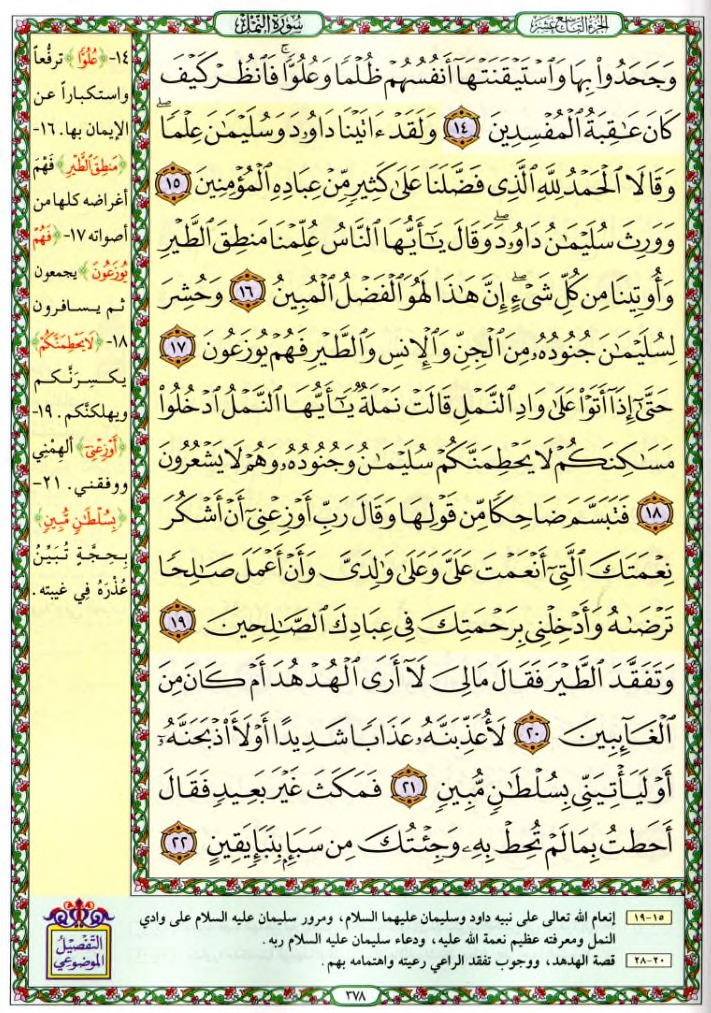 الجزء التاسع عشر
سورة النمل
وَجَحَدُوا۟ بِهَا وَٱسْتَيْقَنَتْهَآ أَنفُسُهُمْ ظُلْمًا وَعُلُوًّا ۚ فَٱنظُرْ كَيْفَ
كَانَ عَـٰقِبَةُ ٱلْمُفْسِدِينَ ١٤ وَلَقَدْ ءَاتَيْنَا دَاوُۥدَ وَسُلَيْمَـٰنَ عِلْمًا ۖ
وَقَالَا ٱلْحَمْدُ لِلَّهِ ٱلَّذِى فَضَّلَنَا عَلَىٰ كَثِيرٍ مِّنْ عِبَادِهِ ٱلْمُؤْمِنِينَ ١٥
وَوَرِثَ سُلَيْمَـٰنُ دَاوُۥدَ ۖ وَقَالَ يَـٰٓأَيُّهَا ٱلنَّاسُ عُلِّمْنَا مَنطِقَ ٱلطَّيْرِ
وَأُوتِينَا مِن كُلِّ شَىْءٍ ۖ إِنَّ هَـٰذَا لَهُوَ ٱلْفَضْلُ ٱلْمُبِينُ ١٦ وَحُشِرَ
لِسُلَيْمَـٰنَ جُنُودُهُۥ مِنَ ٱلْجِنِّ وَٱلْإِنسِ وَٱلطَّيْرِ فَهُمْ يُوزَعُونَ ١٧
حَتَّىٰٓ إِذَآ أَتَوْا۟ عَلَىٰ وَادِ ٱلنَّمْلِ قَالَتْ نَمْلَةٌ يَـٰٓأَيُّهَا ٱلنَّمْلُ ٱدْخُلُوا۟
مَسَـٰكِنَكُمْ لَا يَحْطِمَنَّكُمْ سُلَيْمَـٰنُ وَجُنُودُهُۥ وَهُمْ لَا يَشْعُرُونَ
١٨ فَتَبَسَّمَ ضَاحِكًا مِّن قَوْلِهَا وَقَالَ رَبِّ أَوْزِعْنِىٓ أَنْ أَشْكُرَ
نِعْمَتَكَ ٱلَّتِىٓ أَنْعَمْتَ عَلَىَّ وَعَلَىٰ وَٰلِدَىَّ وَأَنْ أَعْمَلَ صَـٰلِحًا
تَرْضَىٰهُ وَأَدْخِلْنِى بِرَحْمَتِكَ فِى عِبَادِكَ ٱلصَّـٰلِحِينَ ١٩
وَتَفَقَّدَ ٱلطَّيْرَ فَقَالَ مَالِىَ لَآ أَرَى ٱلْهُدْهُدَ أَمْ كَانَ مِنَ
ٱلْغَآئِبِينَ ٢٠ لَأُعَذِّبَنَّهُۥ عَذَابًا شَدِيدًا أَوْ لَأَا۟ذْبَحَنَّهُۥٓ
أَوْ لَيَأْتِيَنِّى بِسُلْطَـٰنٍ مُّبِينٍ ٢١ فَمَكَثَ غَيْرَ بَعِيدٍ فَقَالَ
أَحَطتُ بِمَا لَمْ تُحِطْ بِهِۦ وَجِئْتُكَ مِن سَبَإٍۭ بِنَبَإٍ يَقِينٍ ٢٢
١٤- ﴿عُلُوًّا﴾ ترفُّعاً
واستكباراً عن
الإيمان بها. ١٦-
﴿مَنطِقَ ٱلطَّيْرِ﴾ فَهْمَ
أغراضه كلها من
أصواته ١٧- ﴿فَهُمْ
يُوزَعُونَ﴾ يجمعون
ثم يسافرون
١٨- ﴿لَا يَحْطِمَنَّكُمْ﴾
يكسِرَنَّكم
ويهلكنَّكم. ١٩-
﴿أَوْزِعْنِىٓ﴾ ألهِمْني
ووفقني. ٢١-
﴿بِسُلْطَـٰنٍ مُّبِينٍ﴾
بحجَّةٍ تُبَيِّنُ
عُذْرَهُ في غيبته.
التفصيل
الموضوعي
١٥-١٩ إنعام الله تعالى على نبيه داود وسليمان عليهما السلام، ومرور سليمان عليه السلام على وادي
النمل ومعرفته عظيم نعمة الله عليه، ودعاء سليمان عليه السلام ربه.
٢٠-٢٨ قصة الهدهد، ووجوب تفقد الراعي رعيته واهتمامه بهم.
٣٧٨